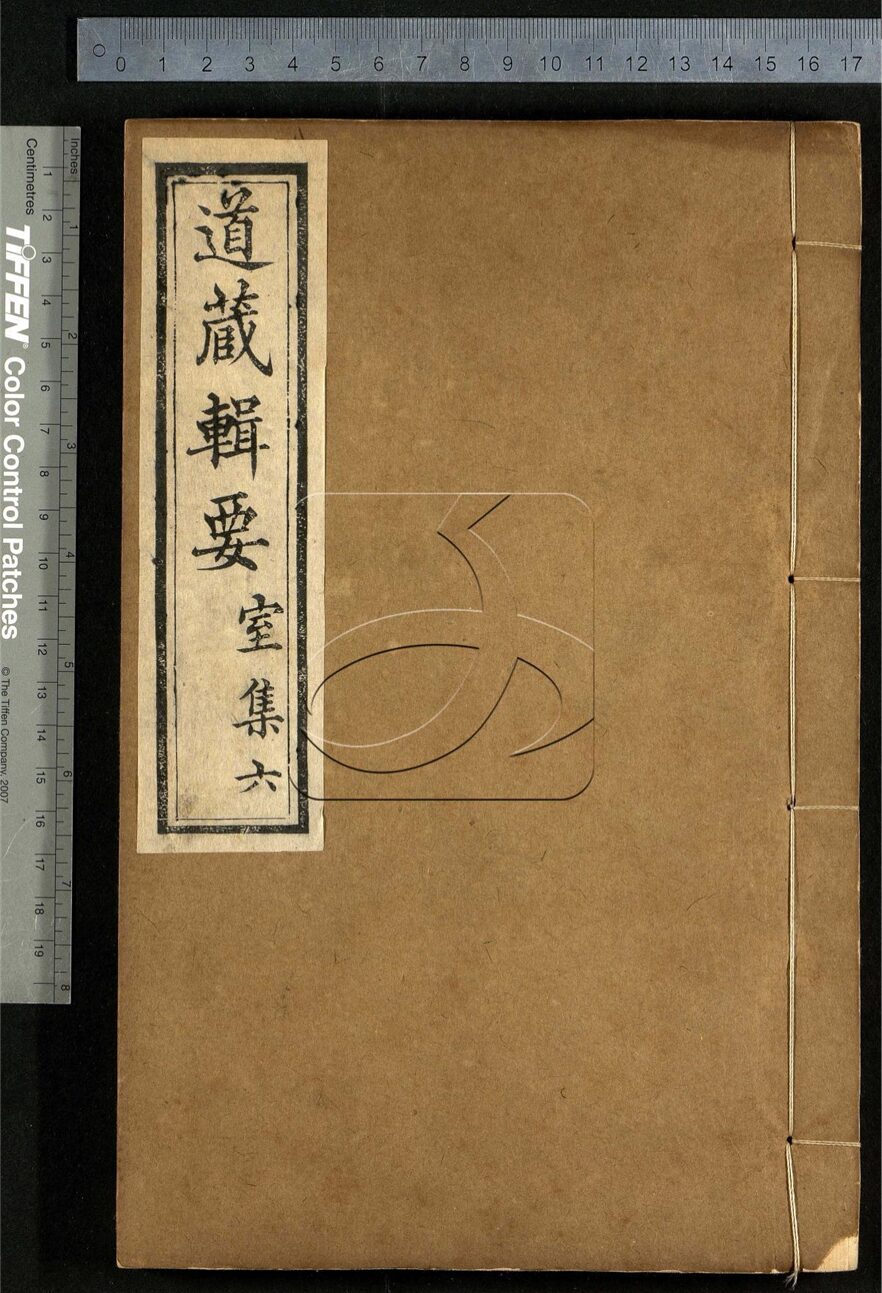 0 1 2 3 4 5 6 7 8 9 10 11 12 13 14 15 16 17
道藏輯要
室集六
Inches
1 2 3 4 5 6 7 8
Centimetres
1 2 3 4 5 6 7 8 9 10 11 12 13 14 15 16 17 18 19
TIFFEN® Color Control Patches
© The Tiffen Company, 2007